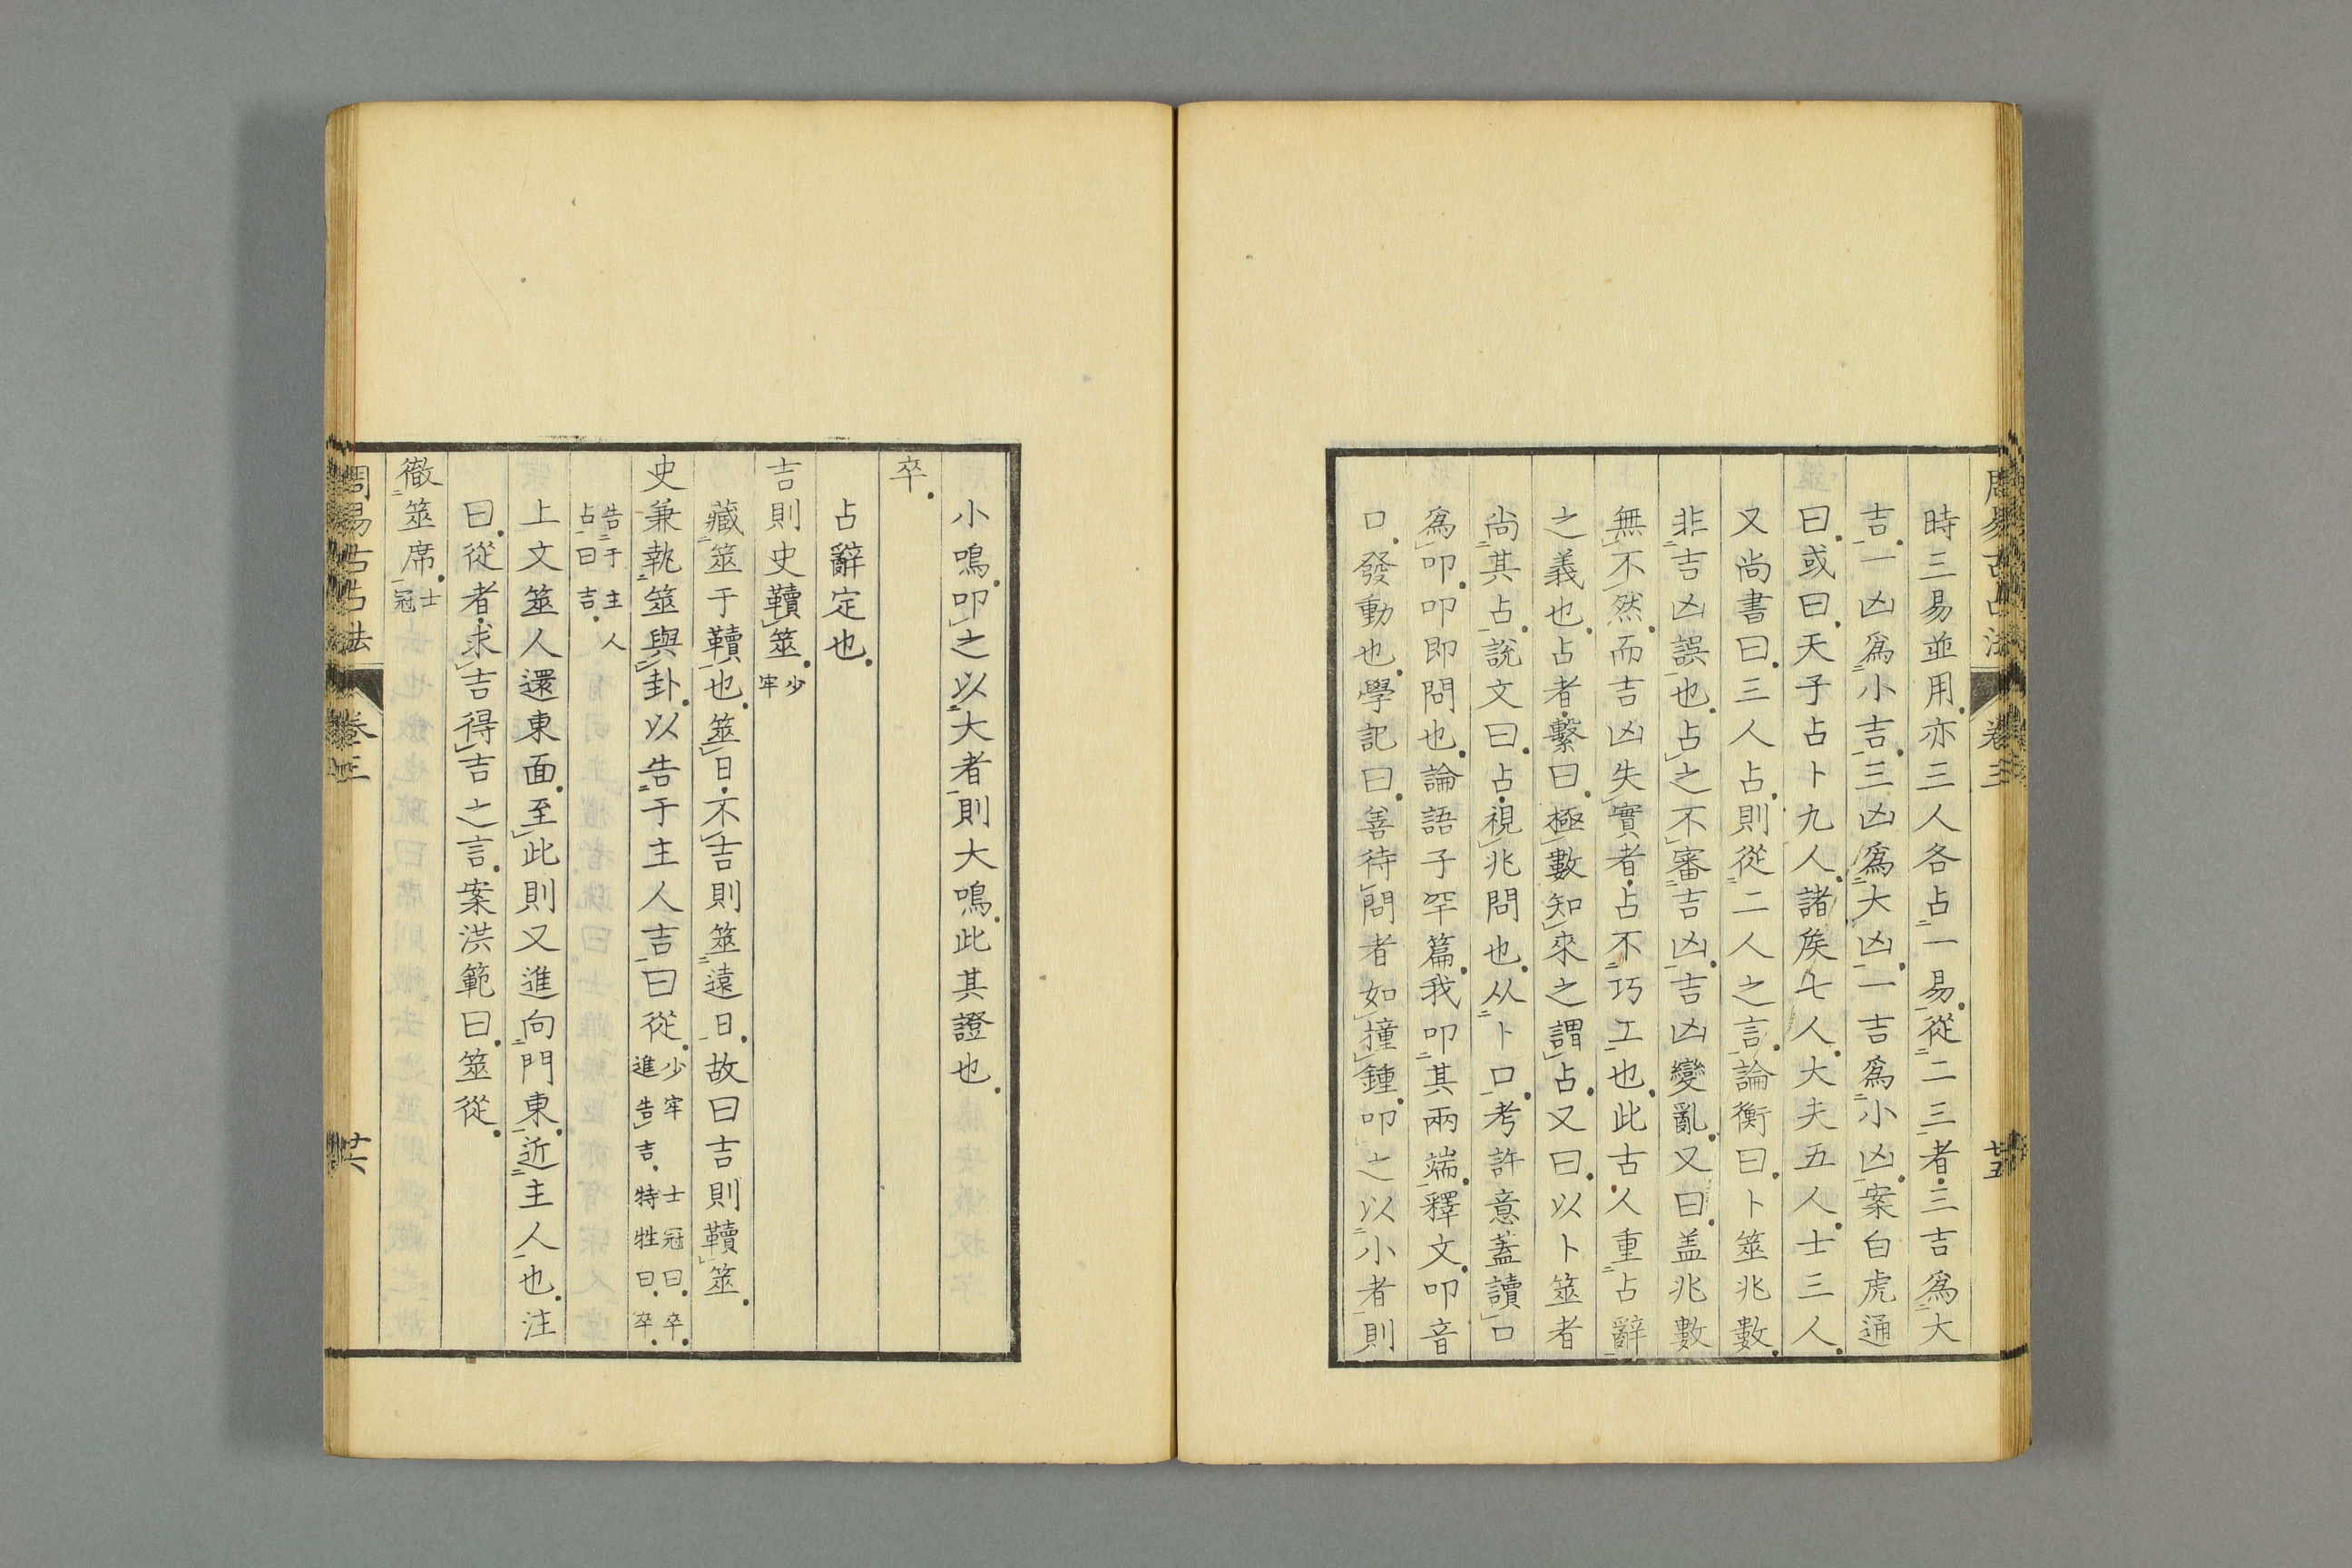 周易古占法 卷三 廿五
時三易並用亦三人各占一易從二三者三吉爲大
吉一凶爲小吉三凶爲大凶一吉爲小凶案白虎通
曰或曰天子占卜九人諸矦七人大夫五人士三人
又尚書曰三人占則從二人之言論衡曰卜筮兆數
非吉凶誤也占之不審吉凶吉凶變亂又曰盖兆數
無不然而吉凶失實者占不巧工也此古人重占辭
之義也占者繫曰極數知來之謂占又曰以卜筮者
尚其占說文曰占視兆問也从卜口考許意蓋讀口
爲叩叩即問也論語子罕篇我叩其兩端釋文叩音
口發動也學記曰善待問者如撞鍾叩之以小者則
小鳴叩之以大者則大鳴此其證也
卒
占辭定也
吉則史韇筮少牢
藏筮于韇也筮日不吉則筮遠日故曰吉則韇筮
史兼執筮與卦以告于主人吉曰從少牢進告吉特牲曰卒士冠曰卒
告于主人占曰吉
上文筮人還東面至此則又進向門東近主人也注
曰從者求吉得吉之言案洪範曰筮從
徹筮席士冠
周易古占法 卷三 廿六